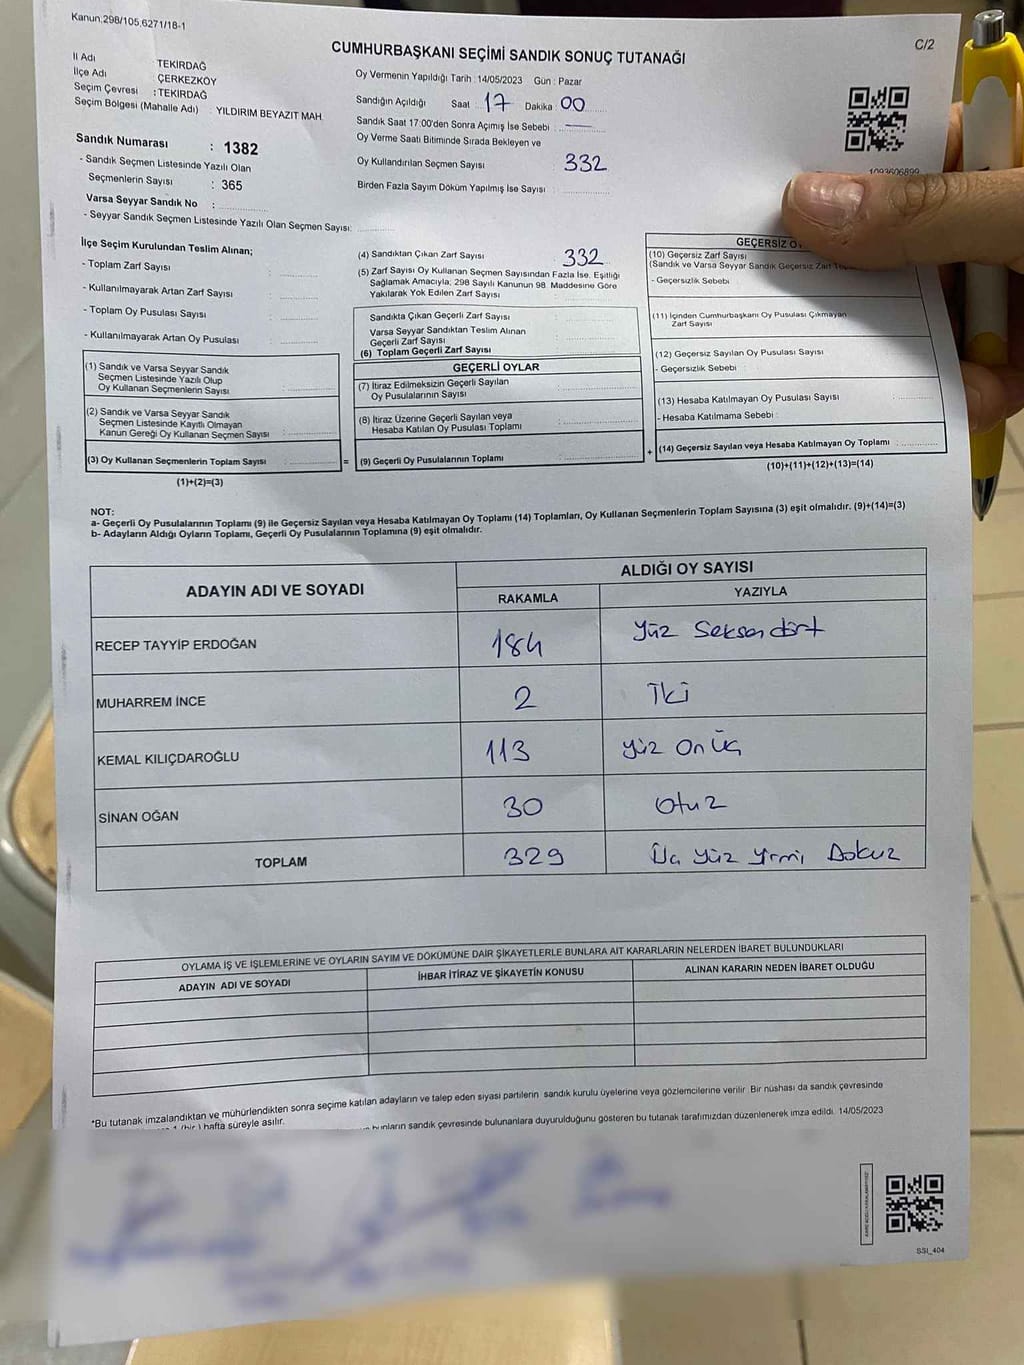 Kanun:298/105.6271/18-1
C/2
CUMHURBAŞKANI SEÇİMİ SANDIK SONUÇ TUTANAĞI
İl Adı TEKİRDAĞ
İlçe Adı ÇERKEZKÖY
Seçim Çevresi : TEKİRDAĞ
Seçim Bölgesi (Mahalle Adı) : YILDIRIM BEYAZIT MAH.
Sandık Numarası : 1382
- Sandık Seçmen Listesinde Yazılı Olan
Seçmenlerin Sayısı : 365
Varsa Seyyar Sandık No :
- Seyyar Sandık Seçmen Listesinde Yazılı Olan Seçmen Sayısı:
Oy Vermenin Yapıldığı Tarih : 14/05/2023 Gün : Pazar
Sandığın Açıldığı Saat : 17 Dakika : 00
Sandık Saat 17:00'den Sonra Açımış İse Sebebi : —
Oy Verme Saati Bitiminde Sırada Bekleyen ve
Oy Kullandırılan Seçmen Sayısı 332
Birden Fazla Sayım Döküm Yapılmış İse Sayısı :
1093606899
İlçe Seçim Kurulundan Teslim Alınan;
- Toplam Zarf Sayısı :
- Kullanılmayarak Artan Zarf Sayısı :
- Toplam Oy Pusulası Sayısı :
- Kullanılmayarak Artan Oy Pusulası :
(1) Sandık ve Varsa Seyyar Sandık
Seçmen Listesinde Yazılı Olup
Oy Kullanan Seçmenlerin Sayısı :
(2) Sandık ve Varsa Seyyar Sandık
Seçmen Listesinde Kayıtlı Olmayan
Kanun Gereği Oy Kullanan Seçmen Sayısı :
(3) Oy Kullanan Seçmenlerin Toplam Sayısı :
(1)+(2)=(3)
(4) Sandıktan Çıkan Zarf Sayısı 332
(5) Zarf Sayısı Oy Kullanan Seçmen Sayısından Fazla İse, Eşitliği
Sağlamak Amacıyla; 298 Sayılı Kanunun 98. Maddesine Göre
Yakılarak Yok Edilen Zarf Sayısı :
Sandıkta Çıkan Geçerli Zarf Sayısı :
Varsa Seyyar Sandıktan Teslim Alınan
Geçerli Zarf Sayısı :
(6) Toplam Geçerli Zarf Sayısı :
GEÇERLİ OYLAR
(7) İtiraz Edilmeksizin Geçerli Sayılan
Oy Pusulalarının Sayısı :
(8) İtiraz Üzerine Geçerli Sayılan veya
Hesaba Katılan Oy Pusulası Toplamı :
= (9) Geçerli Oy Pusulalarının Toplamı :
GEÇERSİZ
(10) Geçersiz Zarf Sayısı
(Sandık ve Varsa Seyyar Sandık Geçersiz Zarf
- Geçersizlik Sebebi :
(11) İçinden Cumhurbaşkanı Oy Pusulası Çıkmayan
Zarf Sayısı
(12) Geçersiz Sayılan Oy Pusulası Sayısı
- Geçersizlik Sebebi :
(13) Hesaba Katılmayan Oy Pusulası Sayısı
- Hesaba Katılmama Sebebi :
+ (14) Geçersiz Sayılan veya Hesaba Katılmayan Oy Toplamı :
(10)+(11)+(12)+(13)=(14)
NOT:
a- Geçerli Oy Pusulalarının Toplamı (9) ile Geçersiz Sayılan veya Hesaba Katılmayan Oy Toplamı (14) Toplamları, Oy Kullanan Seçmenlerin Toplam Sayısına (3) eşit olmalıdır. (9)+(14)=(3)
b- Adayların Aldığı Oyların Toplamı, Geçerli Oy Pusulalarının Toplamına (9) eşit olmalıdır.
ADAYIN ADI VE SOYADI
ALDIĞI OY SAYISI
RAKAMLA YAZIYLA
RECEP TAYYİP ERDOĞAN 184 Yüz Seksen dört
MUHARREM İNCE 2 İki
KEMAL KILIÇDAROĞLU 113 yüz on üç
SİNAN OĞAN 30 otuz
TOPLAM 329 Üç yüz yirmi Dokuz
OYLAMA İŞ VE İŞLEMLERİNE VE OYLARIN SAYIM VE DÖKÜMÜNE DAİR ŞİKAYETLERLE BUNLARA AİT KARARLARIN NELERDEN İBARET BULUNDUKLARI
ADAYIN ADI VE SOYADI İHBAR İTİRAZ VE ŞİKAYETİN KONUSU ALINAN KARARIN NEDEN İBARET OLDUĞU
*Bu tutanak imzalandıktan ve mühürlendikten sonra seçime katılan adayların ve talep eden siyasi partilerin sandık kurulu üyelerine veya gözlemcilerine verilir. Bir nüshası da sandık çevresinde
1 (bir ) hafta süreyle asılır.
bunların sandık çevresinde bulunanlara duyurulduğunu gösteren bu tutanak tarafımızdan düzenlenerek imza edildi. 14/05/2023
SSI_404